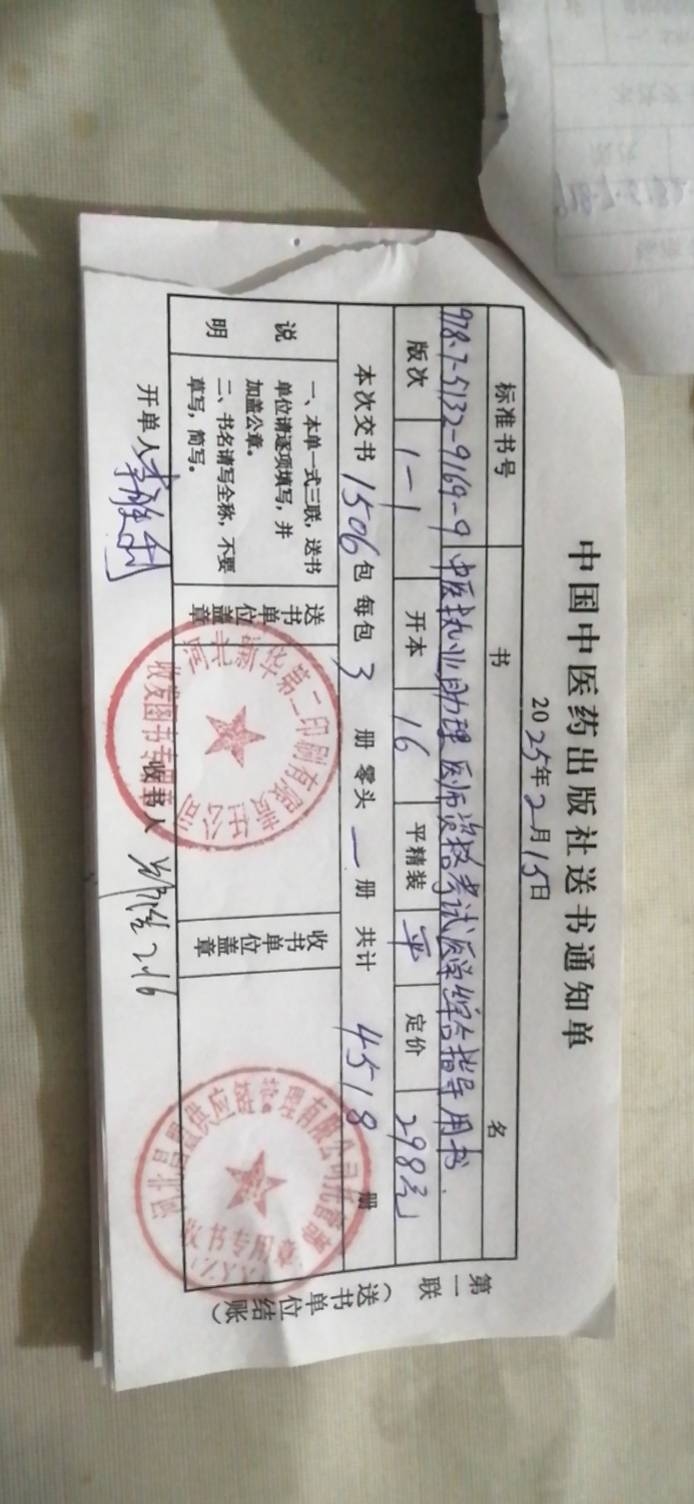 中国中医药出版社送书通知单
2025年2月15日
标准书号 书 名
978-7-5132-9169-9 中医执业助理医师资格考试医学综合指导用书
版次 1-1 开本 16 平精装 平 定价 298元
本次交书 1506 包 每包 3 册 零头 一 册 共计 4518 册
说明
一、本单一式三联，送书
单位请逐项填写，并
加盖公章。
二、书名请写全称，不要
草写，简写。
送书单位盖章
河北新华第二印刷有限责任公司
收发图书专用章
收书单位盖章
河北昌盟供应链管理有限公司
收书专用章
开单人 李胜利
收书人 2/16
第一联（送书单位结账）